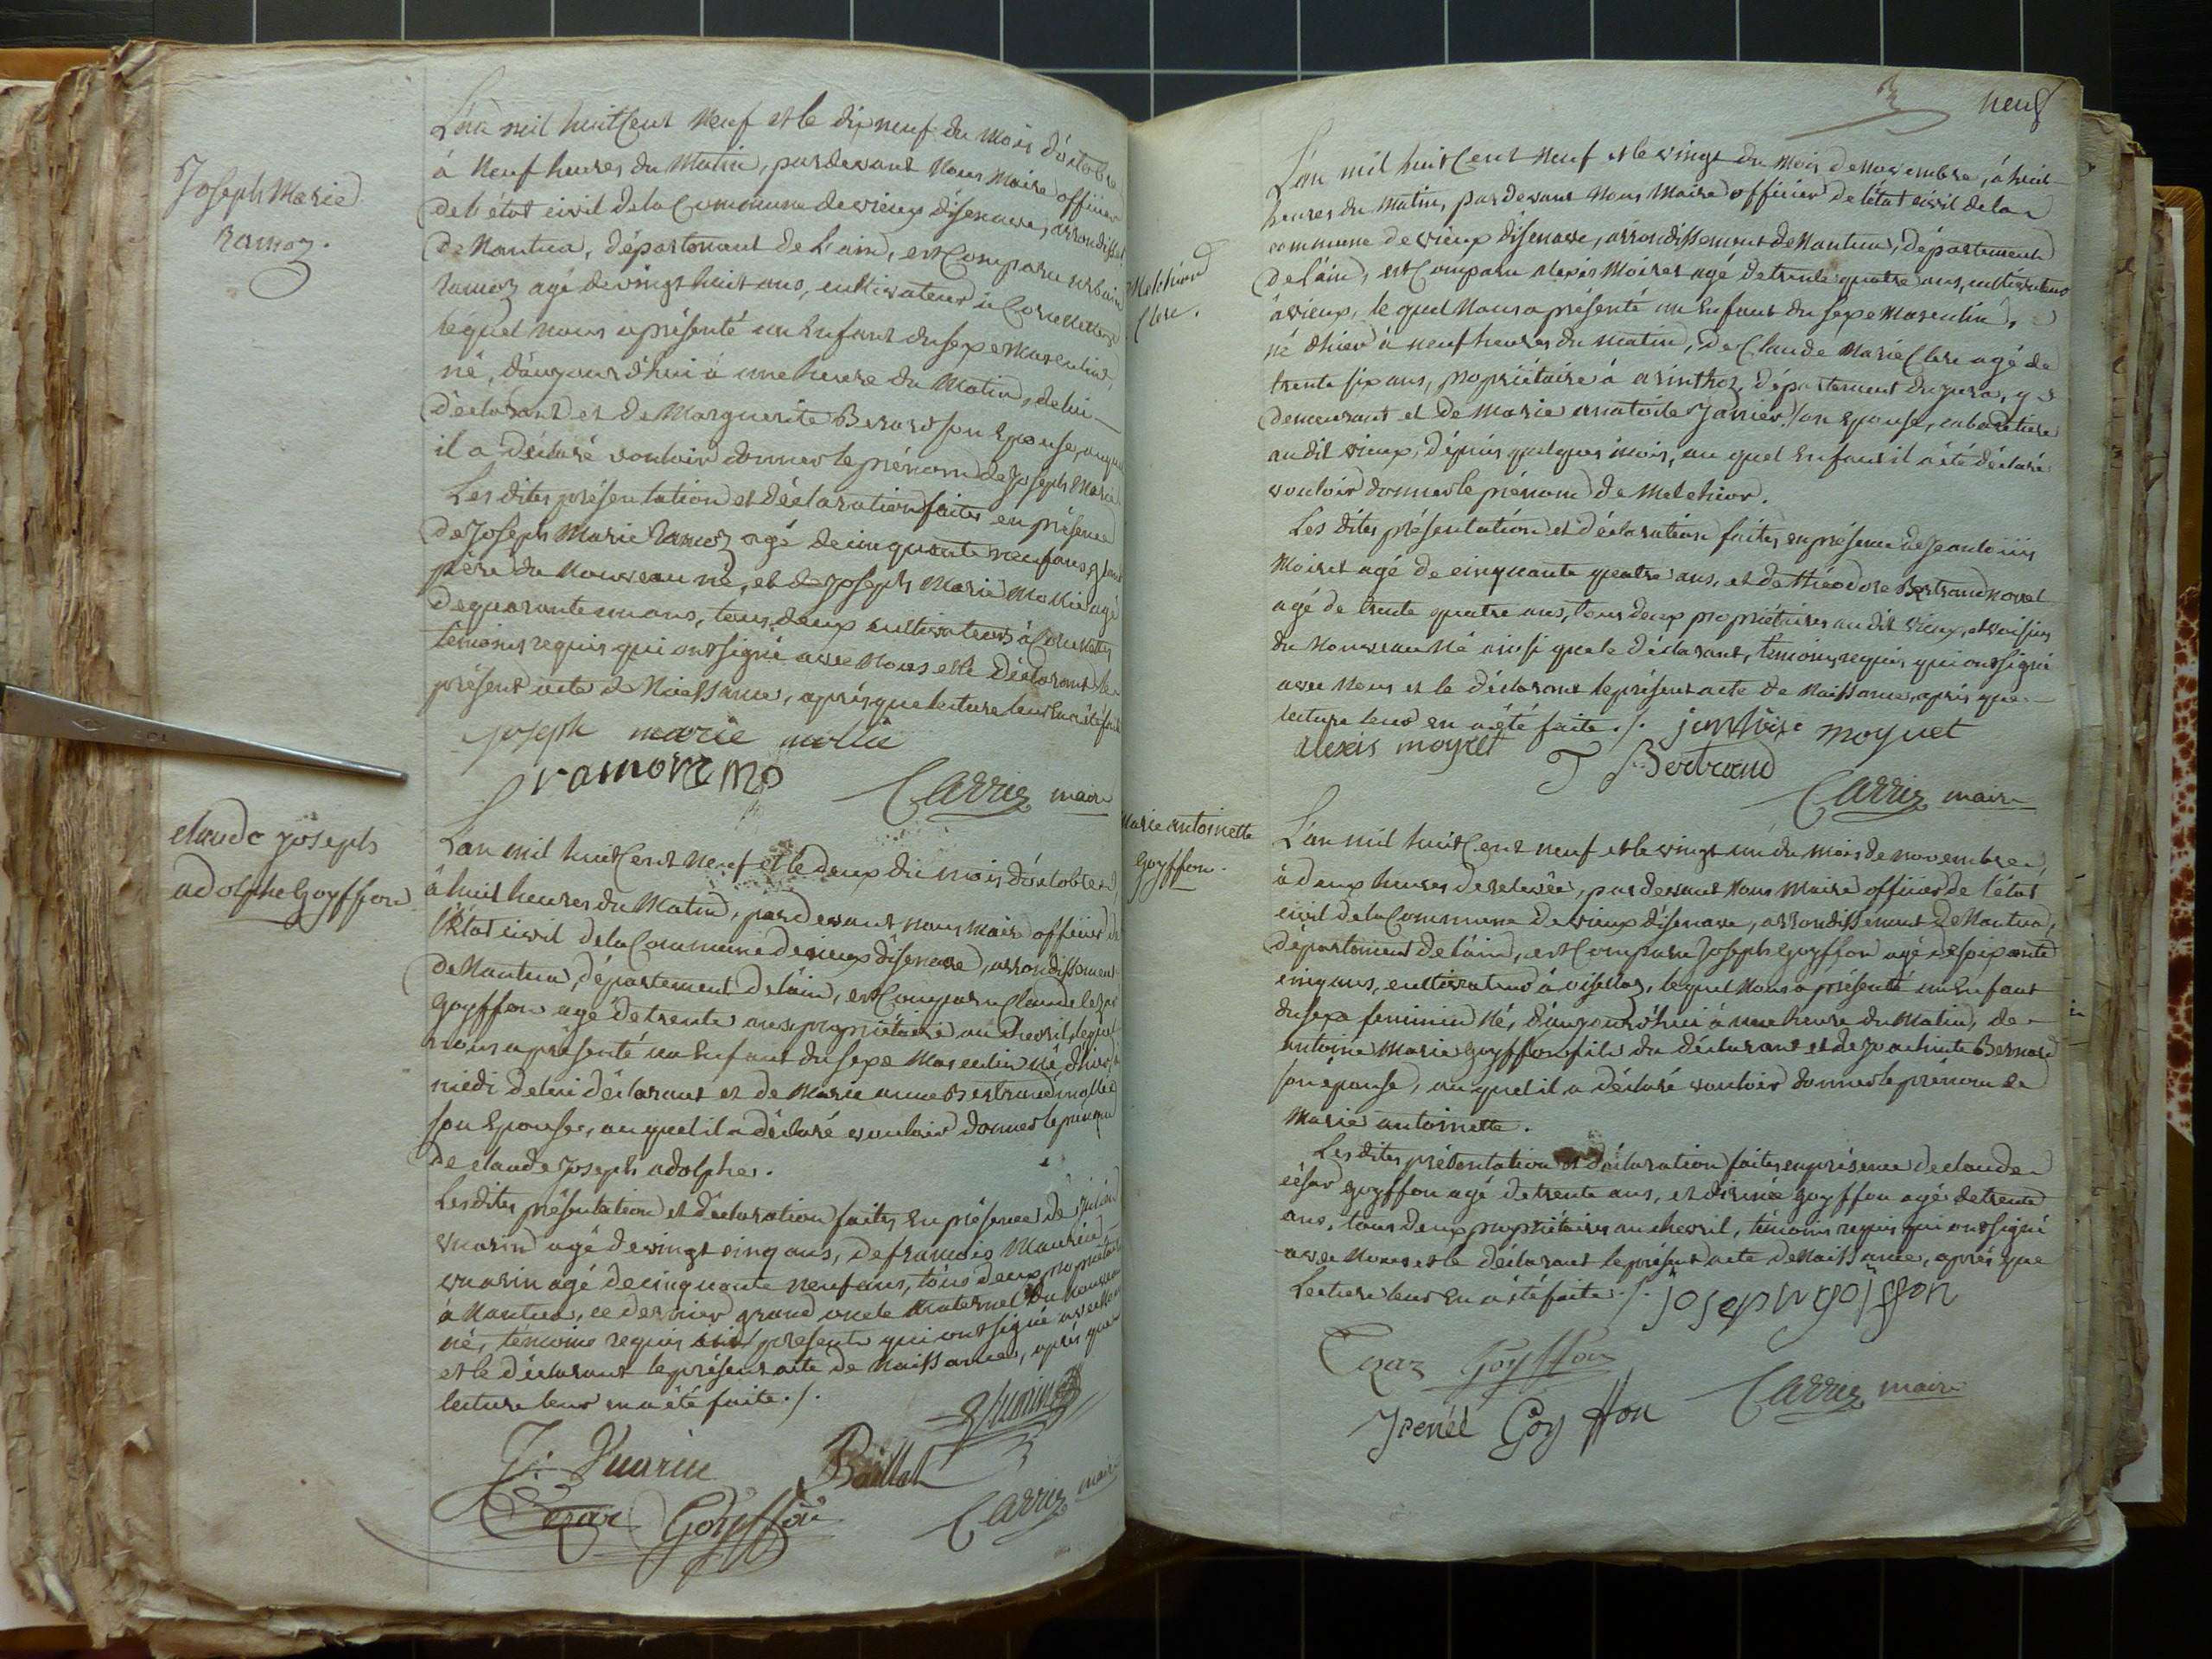 Joseph Marie
ramoz.
L'an mil huit Cent Neuf et le dix neuf du mois d'octobre
à Neuf heures du Matin, pardevant Nous Maire officier
de l'état civil de la Commune de vieux d'isenave, arrondisst
de Nantua, département de L'ain, est Comparu urbain
ramoz agé de vingt huit ans, cultivateur à Corcelettes
lequel nous a présenté un Enfant du sexe Masculin,
né, d'aujourd'hui à une heure du Matin, de lui
déclarant et de Marguerite Berard son Epouse, auquel
il a déclaré vouloir donner le prénom de Joseph Marie
Les dites présentation et déclaration faites en présence
de Joseph Marie ramoz agé de cinquante neuf ans, grand
père du Nouveau né, et de Joseph Marie Mollie agé
de quarante un ans, tous deux cultivateurs à
témoins requis qui ont signé avec Nous et le déclarant le
présent acte de Naissance, après que lecture leur En a été faite
joseph marie molie
ramoz
Carrier maire
claude joseph
adolphe Goyffon
L'an mil huit Cent Neuf et le deux du mois d'octobre
à huit heures du Matin, par devant nous maire officier de
l'état civil de la Commune de vieux d'isenave, arrondissement
de Nantua, département de l'ain, est Comparu Claude Cezar
Goyffon agé de trente ans, propriétaire au chevril, lequel
nous a présenté un Enfant du sexe Masculin né, d'hier à
midi de lui déclarant et de Marie anne Bertrand mollet
son Epouse, auquel il a déclaré vouloir donner le prénom
de claude Joseph adolphe.
Les dites présentation et déclaration faites En présence de
vuarin agé de vingt cinq ans, de françois Maurice
vuarin agé de cinquante neuf ans, tous deux propriétaires
à Nantua, ce dernier grand oncle Maternel du Nouveau
né, témoins requis présents qui ont signé avec Nous
et le déclarant le présent acte de Naissance, après que
lecture leur en a été faite ./.
Vuarin
J. Vuarin Baillat
Cezar Goyffon Carrier maire
neuf
Melchior
Clerc.
L'an mil huit Cent Neuf et le vingt du Mois de Novembre, à huit
heures du Matin, par devant Nous Maire officier de l'état civil de la
commune de vieux d'isenave, arrondissement de Nantua, département
de l'ain, est Comparu alexis Moiret agé de trente quatre ans, cultivateur
à vieux, lequel Nous a présenté un Enfant du sexe Masculin,
né d'hier à neuf heures du matin, de Claude Marie Clerc agé de
trente six ans, propriétaire à arinthoz, département du jura, y
demeurant et de Marie anatoile Janier son Epouse, cabaretiere
au dit vieux, depuis quelques mois, au quel Enfant il a été déclaré
vouloir donner le prénom de Melchior.
Les dites présentation et déclaration faites en présence de
Moiret agé de cinquante quatre ans, et de théodore Bertrand
agé de trente quatre ans, tous deux propriétaires au dit vieux, et voisins
du Nouveau Né ainsi que le déclarant, témoins requis qui ont signé
avec Nous et le déclarant le présent acte de Naissance, après que
lecture leur en a été faite ./.
moyret
alexis moyret T Bertrand
Carrier maire
Marie antoinette
Goyffon.
L'an mil huit Cent neuf et le vingt un du mois de novembre
à deux heures de relevée, par devant Nous Maire officier de l'état
civil de la Commune de vieux d'isenave, arrondissement de Nantua,
département de l'ain, est Comparu Joseph Goyffon agé de soixante
cinq ans, cultivateur à oisellaz, lequel Nous a présenté un Enfant
du sexe feminin Né, d'aujourd'hui à une heure du Matin, de
antoine Marie Goyffon fils du déclarant et de Bernard
son épouse, auquel il a déclaré vouloir donner le prénom de
Marie antoinette.
Les dites présentation et déclaration faites en présence de claude
césar goyffon agé de trente ans, et d'irenée goyffon agé de trente
ans, tous deux propriétaires au chevril, témoins requis qui ont signé
avec Nous et le déclarant le présent acte de Naissance, après que
Lecture leur En a été faite ./. joseph goiffon
Cezar Goyffon
Irenée Goyffon Carrier maire